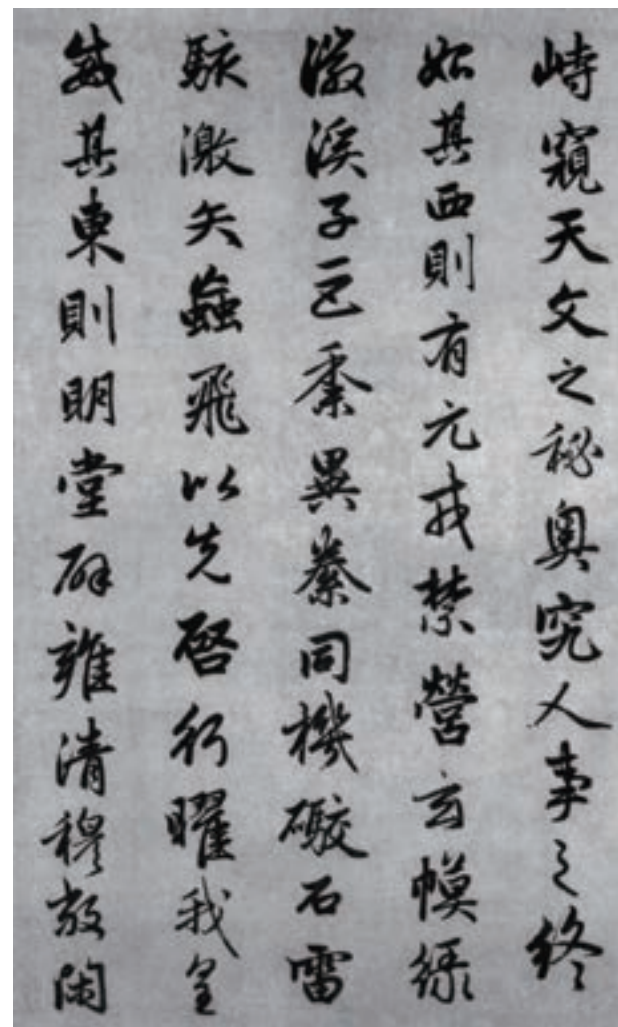 峙窺天文之秘奥究人事之終
始其西則有元戎禁營玄幙綠
徽溪子巨黍異絭同機礮石雷
駭激矢蝱飛以先啓行曜我皇
威其東則明堂辟雍清穆敞閑